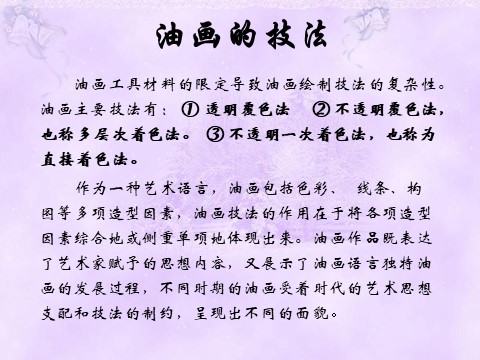 油画的技法
油画工具材料的限定导致油画绘制技法的复杂性。
油画主要技法有：① 透明覆色法 ② 不透明覆色法，
也称多层次着色法。 ③ 不透明一次着色法，也称为
直接着色法。
作为一种艺术语言，油画包括色彩、 线条、构
图等多项造型因素，油画技法的作用在于将各项造型
因素综合地或侧重单项地体现出来。油画作品既表达
了艺术家赋予的思想内容，又展示了油画语言独特油
画的发展过程，不同时期的油画受着时代的艺术思想
支配和技法的制约，呈现出不同的面貌。